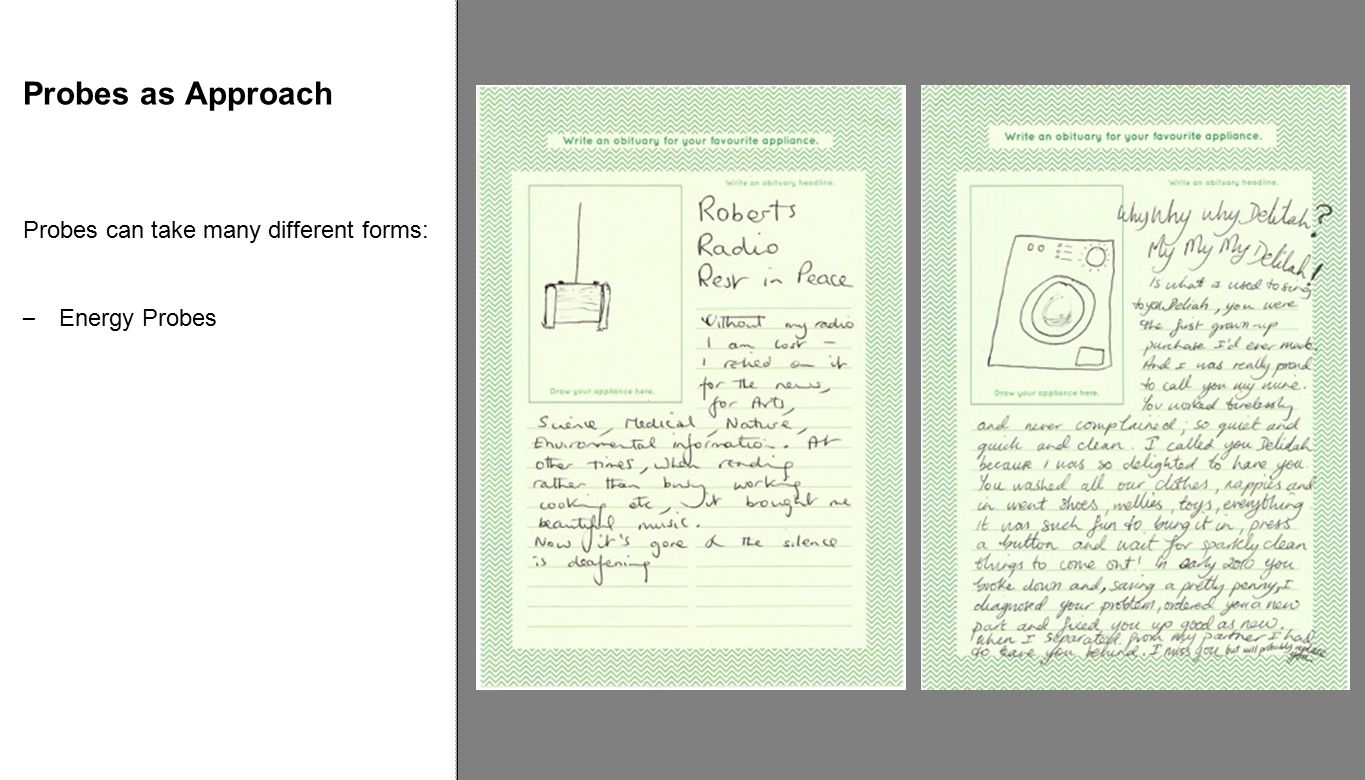 Probes as Approach
Probes can take many different forms:
– Energy Probes
Write an obituary for your favourite appliance.
Write an obituary headline.
Roberts
Radio
Rest in Peace
Draw your appliance here.
Without my radio
I am lost –
I relied on it
for the news,
for Arts,
Science, Medical, Nature,
Enviromental information. At
other times, when reading
rather than busy working
cooking etc, it brought me
beautiful music.
Now it's gone & the silence
is deafening
Write an obituary for your favourite appliance.
Write an obituary headline.
Why Why Why Delilah?
My My My Delilah!
Draw your appliance here.
Is what I used to sing
to you Deliah, you were
the first grown-up
purchase I'd ever made.
And I was really proud
to call you my mine.
You worked tirelessly
and never complained; so quiet and
quick and clean. I called you Delilah
because I was so delighted to have you.
You washed all our clothes, nappies and
in went shoes, wellies, toys, everything
it was such fun to bung it in, press
a button and wait for sparkly clean
things to come out! In early 2010 you
broke down and, saving a pretty penny, I
diagnosed your problem, ordered you a new
part and fixed you up good as new.
When I separated from my partner I had
to leave you behind. I miss you but will probably replace
you.